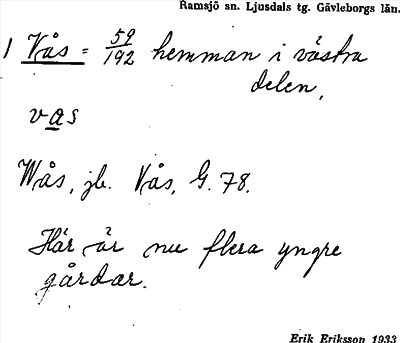 Ramsjö sn. Ljusdals tg. Gävleborgs län.
1 Vås = 59/192 hemman i västra
delen,
vas
Wås, jb. Vås, G. 78.
Här är nu flera yngre
gårdar.
Erik Eriksson 1933